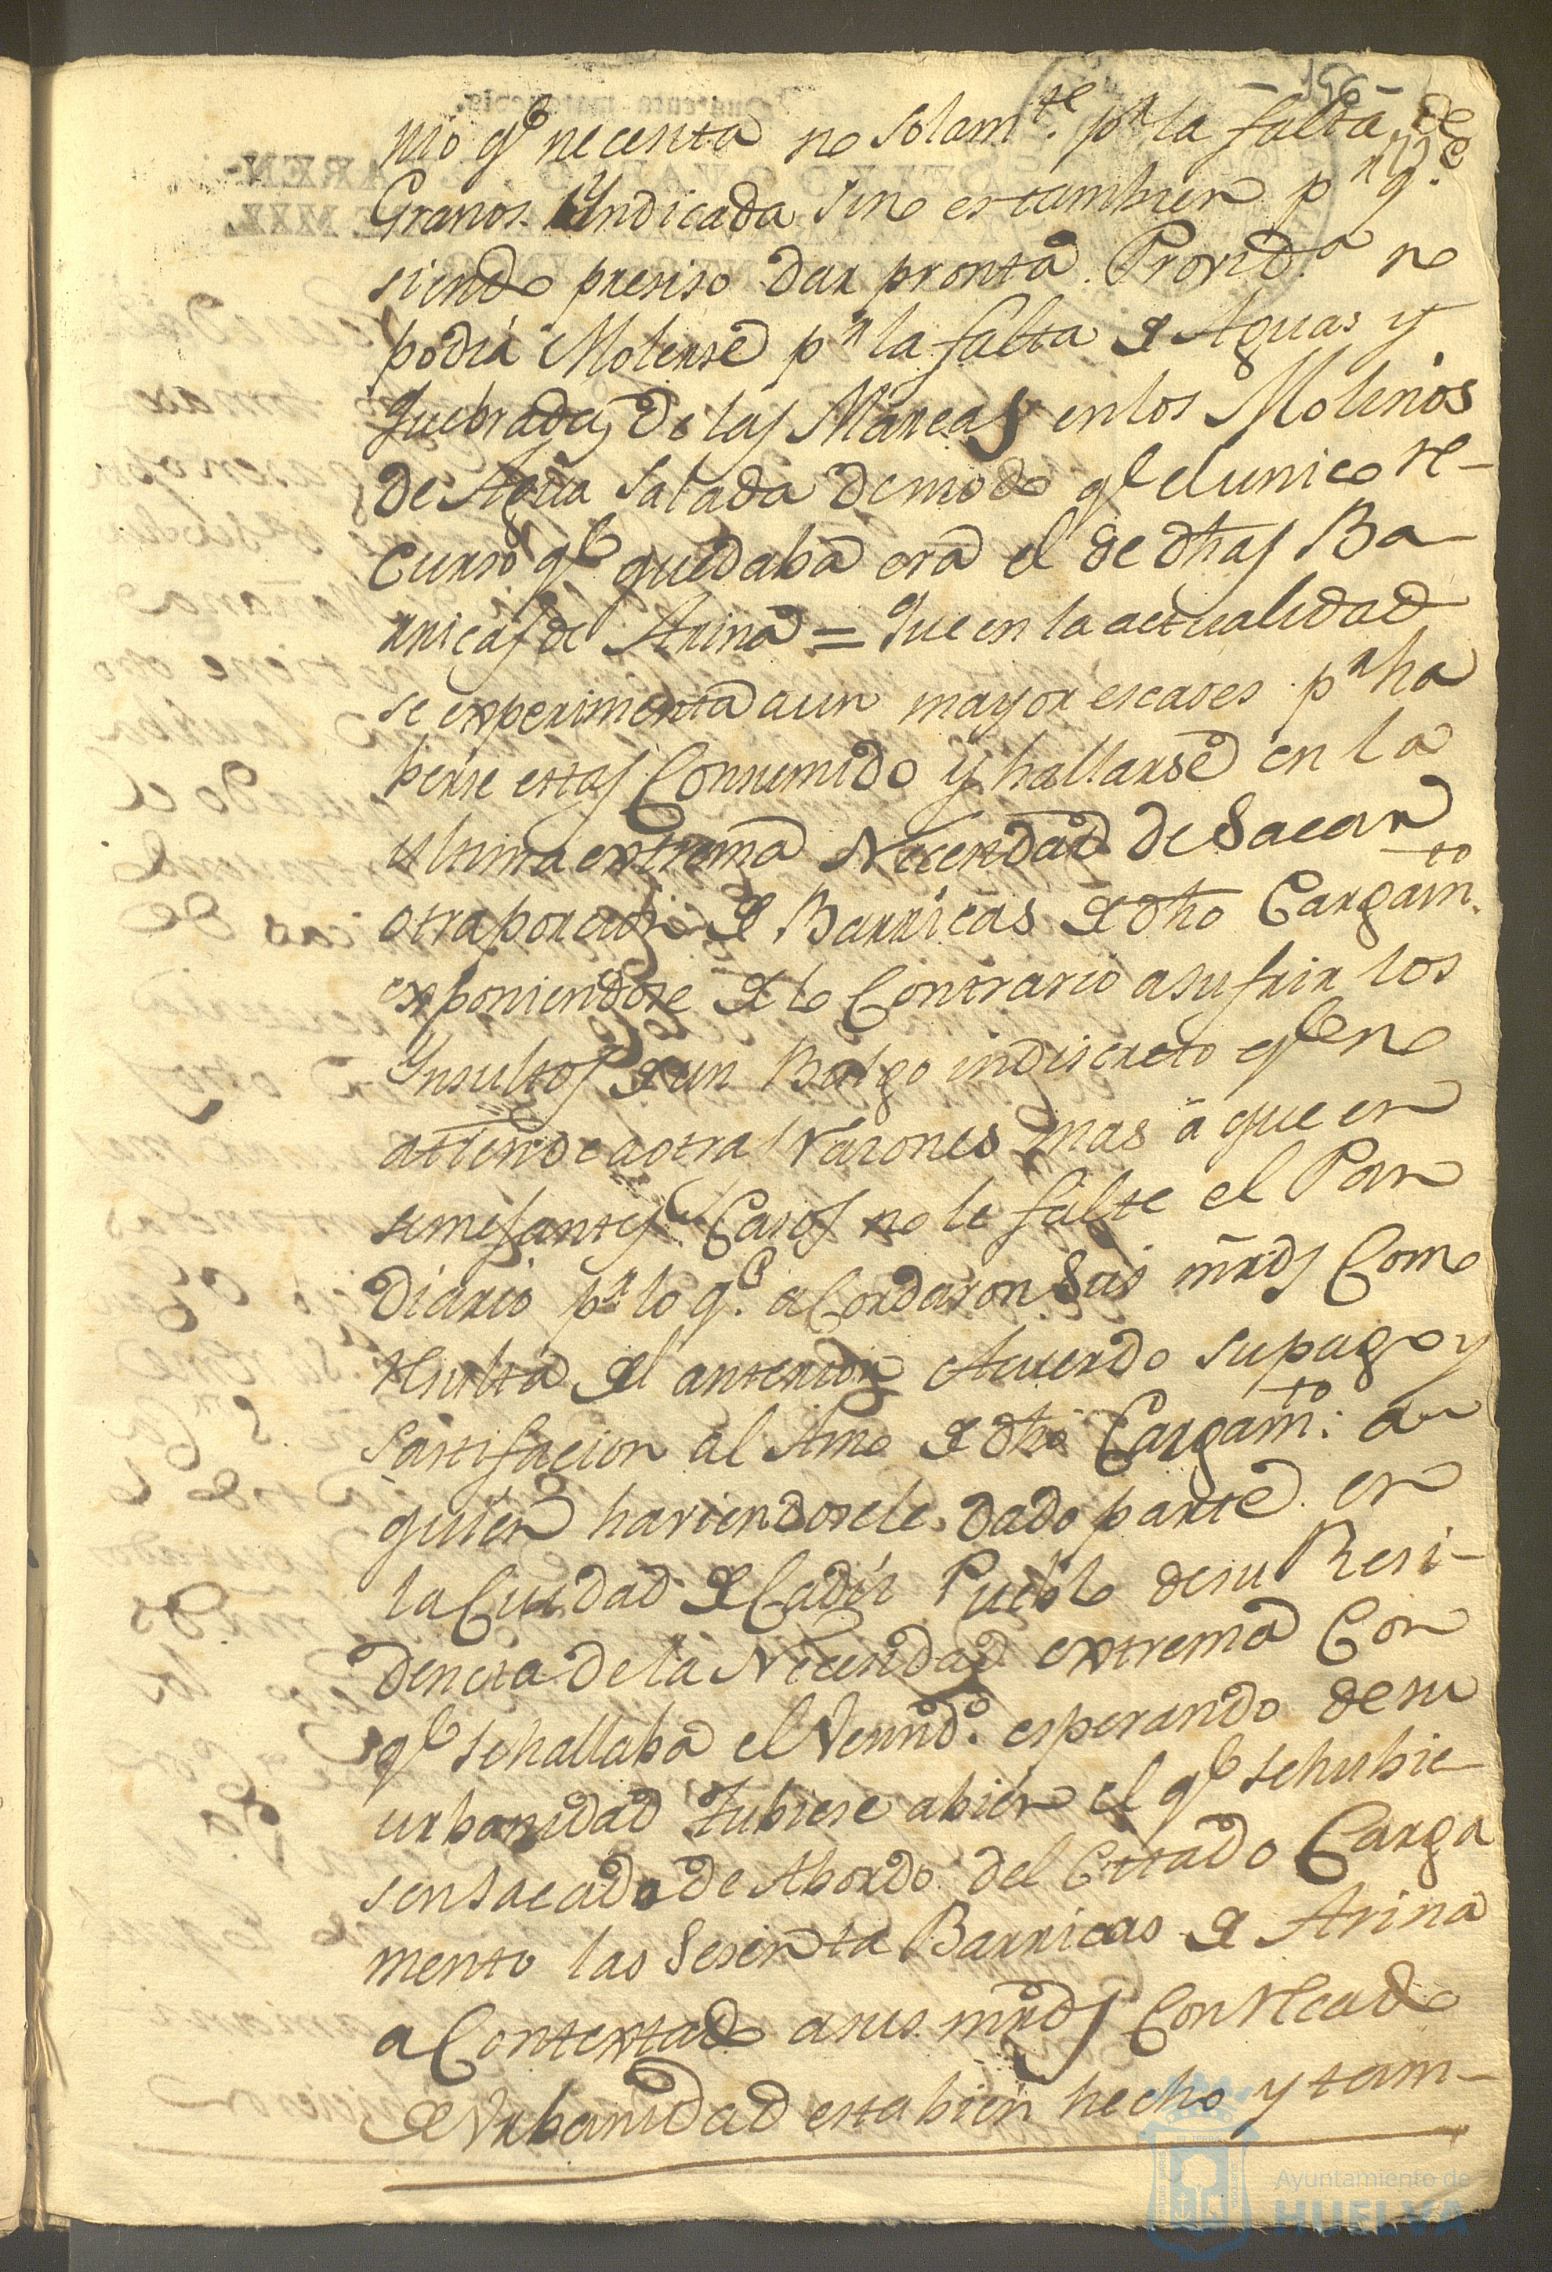 -156-
nio q.e necesita no solam.te p.r la falta de
Granos Yndicada sino es tambien p.r q.e
siendo presiso dar pronta Provid.a no
podia Molerse p.r la falta de Aguas y
quebradas de las Mareas en los Molinos
de Agua Salada de modo q.e el unico re-
curso q.e quedaba era el de dhas Ba-
rricas de Arina = Que en la actualidad
se experimenta aun mayor escases p.r ha
berse estas Consumido y hallarse en la
ultima extrema Necesidad de Sacar
otra porcion de Barricas de dho Cargam.to
exponiendose de lo Contrario a sufrir los
Ynsultos de un Bulgo indiscreto q.e no
atiende a otras razones mas á que en
semejantes Casos no le falte el Pan
Diario p.r lo q.e acordaron Sus mrds Como
resulta del anterior Acuerdo su pago y
sastifacion al Amo de dho Cargam.to: a
quien haviendosele dado parte en
la Ciudad de Cadiz Pueblo de su Resi-
dencia de la Necesidad extrema Con
q.e se hallaba el Vecind.o esperando de su
urbanidad tubiese a bien el q.e se hubie-
sen sacado de Abordo del Citado Carga
mento las Sesenta Barricas de Arina
a Contextado a sus mrds Con recado
de Urbanidad esta bien hecho y tam-
Ayuntamiento de
HUELVA